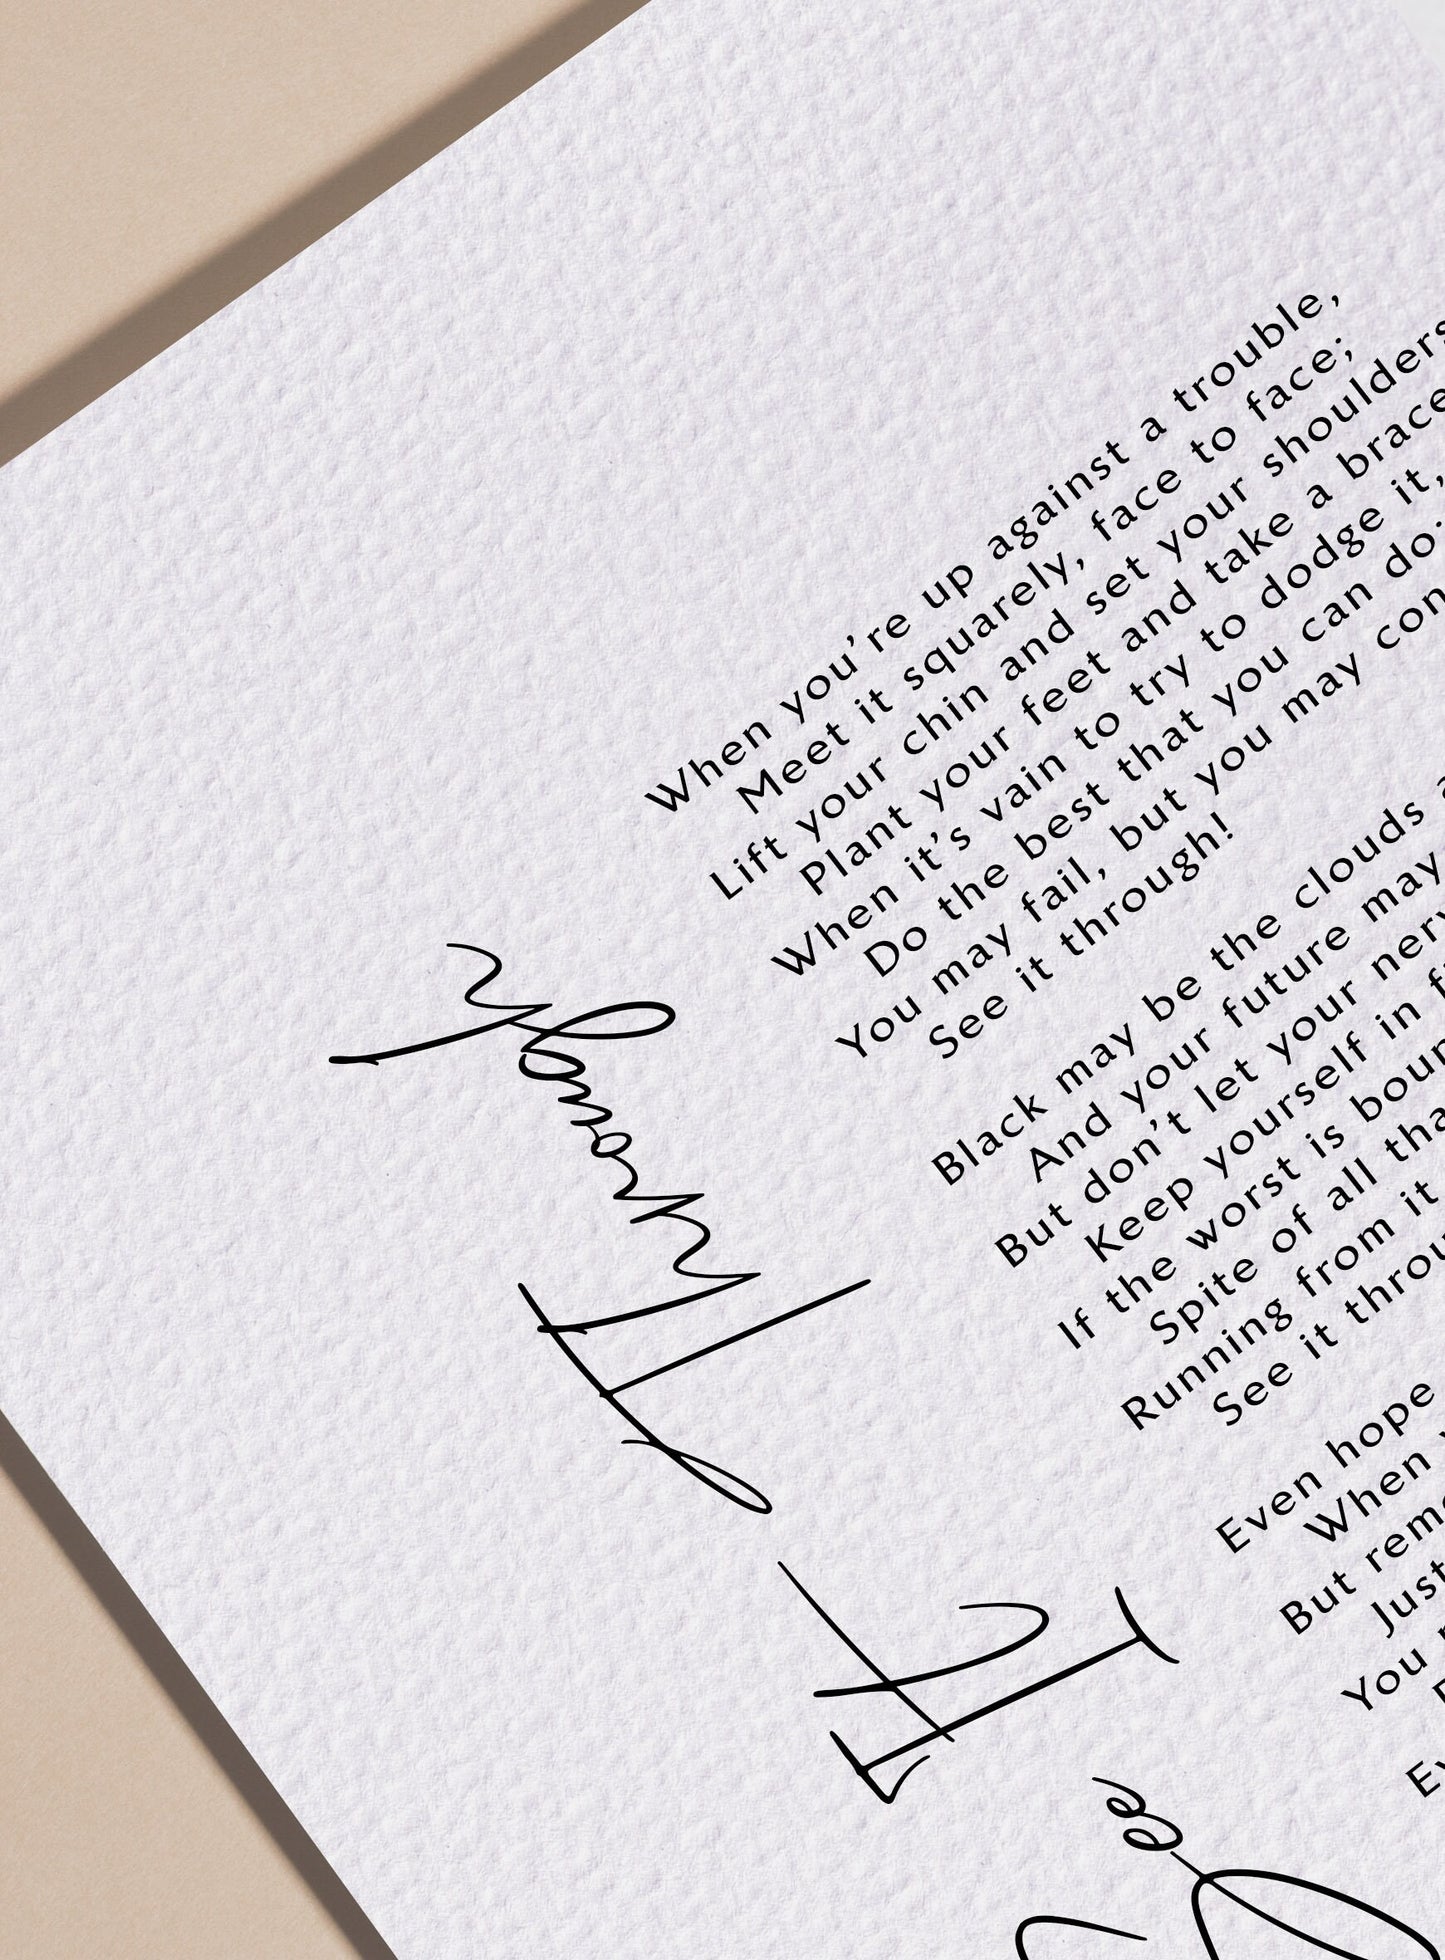 See It Through
When you're up against a trouble,
Meet it squarely, face to face;
Lift your chin and set your shoulders
Plant your feet and take a brace
When it's vain to try to dodge it,
Do the best that you can do;
You may fail, but you may con
See it through!
Black may be the clouds a
And your future may
But don't let your nerv
Keep yourself in f
If the worst is boun
Spite of all tha
Running from it
See it throu
Even hope
When
But reme
Just
You
Ev